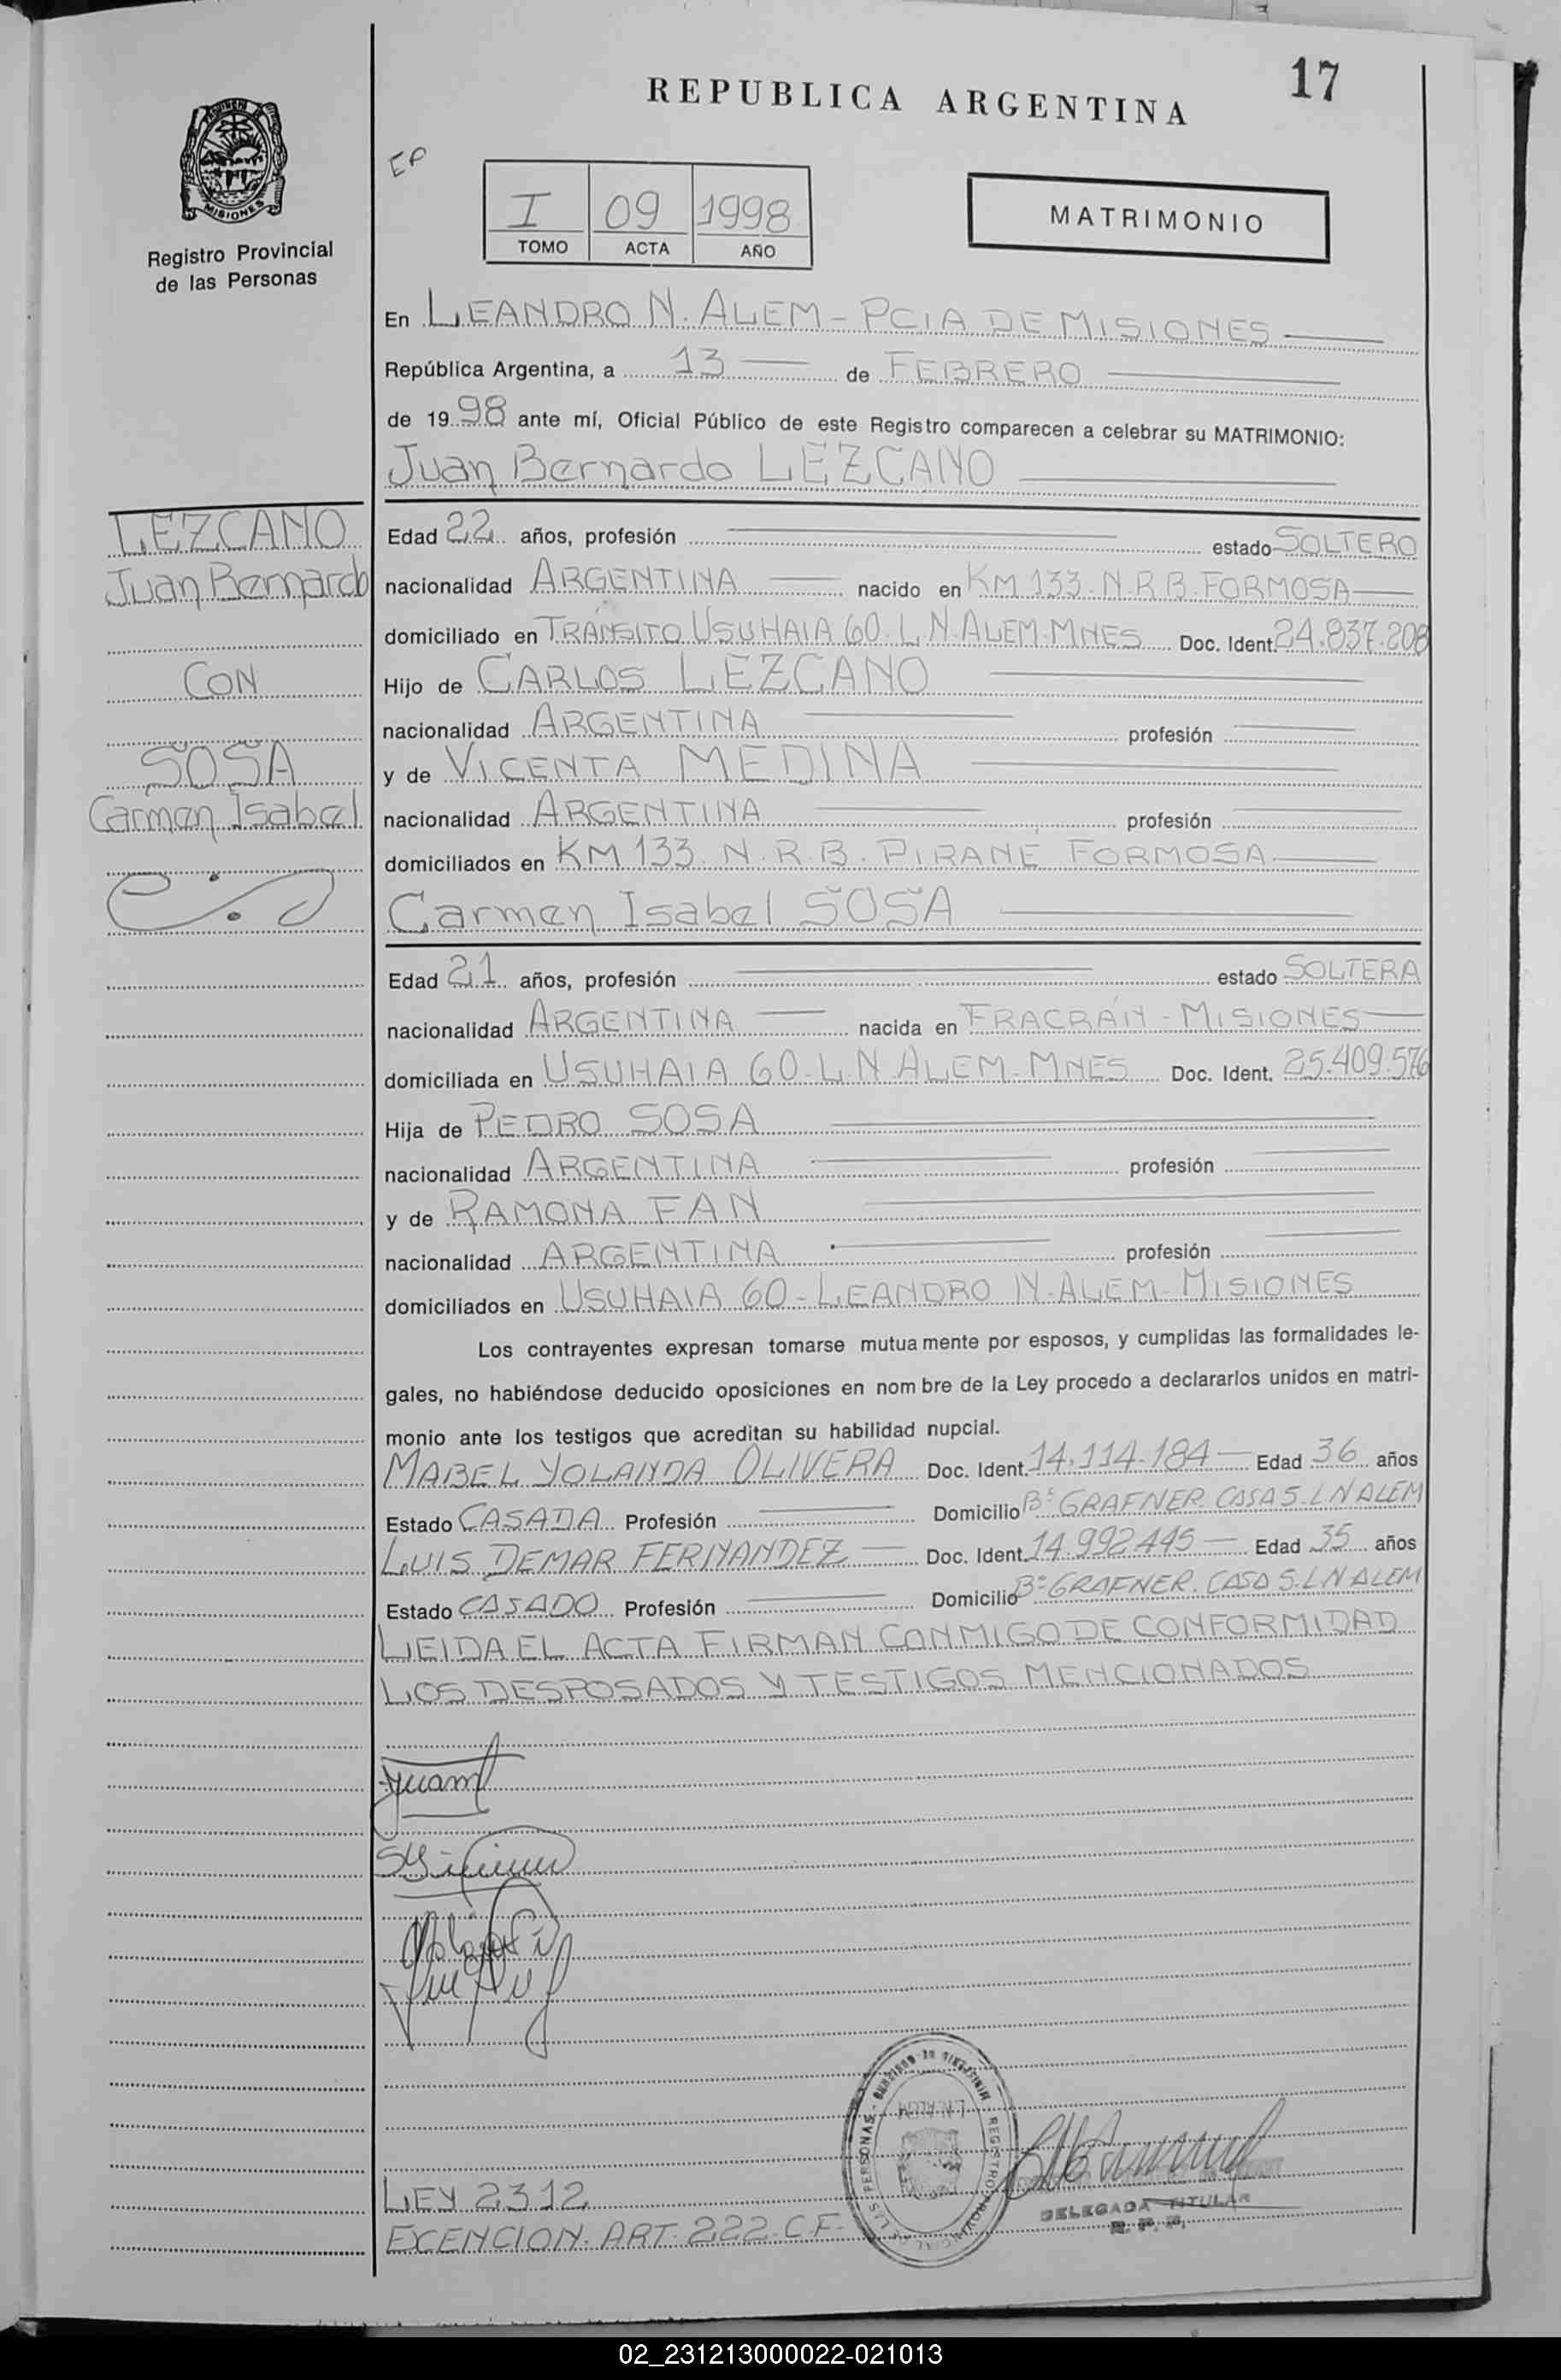 17
REPUBLICA ARGENTINA
MISIONES
Registro Provincial
de las Personas
EP
I 09 1998
TOMO ACTA AÑO
MATRIMONIO
En LEANDRO N. ALEM - PCIA DE MISIONES
República Argentina, a 13 de FEBRERO
de 1998 ante mí, Oficial Público de este Registro comparecen a celebrar su MATRIMONIO:
Juan Bernardo LEZCANO
LEZCANO
Juan Bernardo
CON
SOSA
Carmen Isabel
Edad 22 años, profesión estado SOLTERO
nacionalidad ARGENTINA nacido en KM 133-N.R.B. FORMOSA
domiciliado en TRÁNSITO USUHAIA 60. L.N.ALEM-MNES Doc. Ident. 24.837.208
Hijo de CARLOS LEZCANO
nacionalidad ARGENTINA profesión
y de VICENTA MEDINA
nacionalidad ARGENTINA profesión
domiciliados en KM 133. N.R.B. PIRANE FORMOSA
Carmen Isabel SOSA
Edad 21 años, profesión estado SOLTERA
nacionalidad ARGENTINA nacida en FRACRÁN - MISIONES
domiciliada en USUHAIA 60-L.N.ALEM-MNES Doc. Ident. 25.409.576
Hija de PEDRO SOSA
nacionalidad ARGENTINA profesión
y de RAMONA FAN
nacionalidad ARGENTINA profesión
domiciliados en USUHAIA 60-LEANDRO N.ALEM-MISIONES
Los contrayentes expresan tomarse mutuamente por esposos, y cumplidas las formalidades le-
gales, no habiéndose deducido oposiciones en nombre de la Ley procedo a declararlos unidos en matri-
monio ante los testigos que acreditan su habilidad nupcial.
MABEL YOLANDA OLIVERA Doc. Ident. 14.114.184 Edad 36 años
Estado CASADA Profesión Domicilio Bº GRAFNER. CASA 5. L N ALEM
LUIS DEMAR FERNANDEZ Doc. Ident. 14.992.445 Edad 35 años
Estado CASADO Profesión Domicilio Bº GRAFNER. CASA 5. L N ALEM
LEIDA EL ACTA FIRMAN CONMIGO DE CONFORMIDAD
LOS DESPOSADOS Y TESTIGOS MENCIONADOS
L.N.ALEM
DELEGADA TITULAR
R. P. P.
LEY 2312
EXCENCION. ART. 222-C.F.
02_231213000022-021013